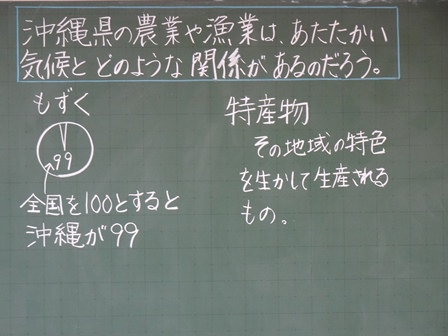 沖縄県の農業や漁業は、あたたかい
気候と どのような関係が あるのだろう。
もずく
99
全国を100とすると
沖縄が99
特産物
その地域の特色
を生かして生産される
もの。